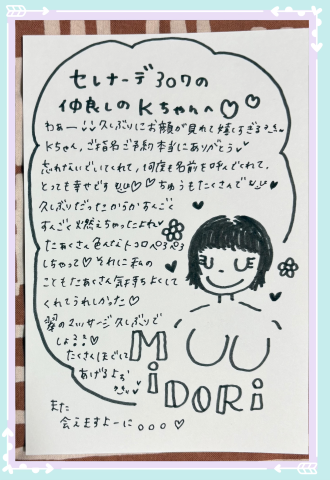 セレナーデ307の
仲良しのKちゃんへ♡♡
わぁー 久しぶりにお顔が見れて嬉しすぎる
Kちゃん、ご指名ご予約本当にありがとう
忘れないでいてくれて、何度も名前を呼んでくれて、
とっても幸せです♡♡ちゅうもたくさんで
久しぶりだったからかすんごく
すんごく燃えちゃったよね♡
たぁくさん色んなトコロペロペロ
しちゃって♡それに私の
こともたぁくさん気持ちよくして
くれてうれしかった♡
翠のマッサージ久しぶりで
しょ
たくさんほぐして
あげるよぉ
また
会えますよーに。。。♡
MiDORi